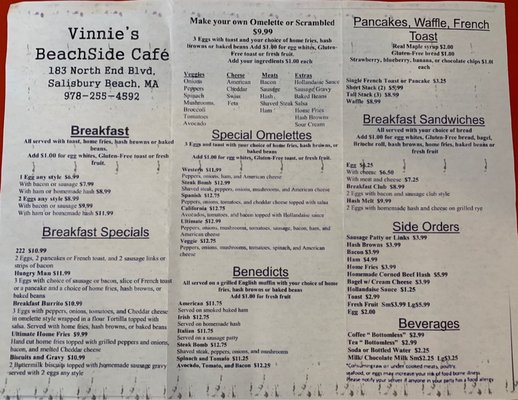 Vinnie's
BeachSide Café
183 North End Blvd,
Salisbury Beach, MA
978-255-4592
Breakfast
All served with toast, home fries, hash browns or baked
beans.
Add $1.00 for egg whites, Gluten-Free toast or fresh
fruit.
1 Egg any style $6.99
With bacon or sausage $7.99
With ham or homemade hash $8.99
2 Eggs any style $8.99
With bacon or sausage $9.99
With ham or homemade hash $11.99
Breakfast Specials
222 $10.99
2 Eggs, 2 pancakes or French toast, and 2 sausage links or
strips of bacon
Hungry Man $11.99
3 Eggs with choice of sausage or bacon, slice of French toast
or a pancake and a choice of home fries, hash browns, or
baked beans
Breakfast Burrito $10.99
3 Eggs with peppers, onions, tomatoes, and Cheddar cheese
in omelette style wrapped in a flour Tortilla topped with
salsa. Served with home fries, hash browns, or baked beans
Ultimate Home Fries $9.99
Hand cut home fries topped with grilled peppers and onions,
bacon, and melted Cheddar cheese
Biscuits and Gravy $10.99
2 Buttermilk biscuits topped with homemade sausage gravy
served with 2 eggs any style
Make your own Omelette or Scrambled
$9.99
3 Eggs with toast and your choice of home fries, hash
browns or baked beans Add $1.00 for egg whites, Gluten-
Free toast or fresh fruit.
Add your ingredients $1.00 each
Veggies Cheese Meats Extras
Onions American Bacon Hollandaise Sauce
Peppers Cheddar Sausage Sausage Gravy
Spinach Swiss Hash Baked Beans
Mushrooms Feta Shaved Steak Salsa
Broccoli Ham Home Fries
Tomatoes Hash Browns
Avocado Sour Cream
Special Omelettes
3 Egg and toast with your choice of home fries, hash browns, or
baked beans
Add $1.00 for egg whites, Gluten-Free toast or fresh fruit.
Western $11.99
Peppers, onions, ham, and American cheese
Steak Bomb $12.99
Shaved steak, peppers, onions, mushrooms, and American cheese
Spanish $12.75
Peppers, onions, tomatoes, and cheddar cheese topped with salsa
California $12.75
Avocados, tomatoes, and bacon topped with Hollandaise sauce
Ultimate $12.99
Peppers, onions, mushrooms, tomatoes, sausage, bacon, ham, and
American cheese
Veggie $12.75
Peppers, onions, mushrooms, tomatoes, spinach, and American
cheese
Benedicts
All served on a grilled English muffin with your choice of
home fries, hash browns, or baked beans
Add $1.00 for fresh fruit
American $11.75
Served on smoked baked ham
Irish $12.75
Served on homemade hash
Italian $11.75
Served on a sausage patty
Steak Bomb $12.75
Shaved steak, peppers, onions, and mushrooms
Spinach and Tomato $11.25
Avocado, Tomato, and Bacon $12.25
Pancakes, Waffle, French
Toast
Real Maple syrup $2.00
Gluten-Free bread $1.00
Strawberry, blueberry, banana, or chocolate chips $1.00
each
Single French Toast or Pancake $3.25
Short Stack (2) $5.99
Tall Stack (3) $8.99
Waffle $8.99
Breakfast Sandwiches
All served with your choice of bread
Add $1.00 for egg whites, Gluten-Free bread, bagel,
Brioche roll, hash browns, home fries, baked beans or
fresh fruit
Egg $5.25
With cheese $6.50
With meat and cheese $7.25
Breakfast Club $8.99
2 Eggs with bacon and sausage club style
Hash Melt $9.99
2 Eggs with homemade hash and cheese on grilled rye
Side Orders
Sausage Patty or Links $3.99
Hash Browns $3.99
Bacon $3.99
Ham $4.99
Home Fries $3.99
Homemade Corned Beef Hash $5.99
Bagel w/ Cream Cheese $3.99
Hollandaise Sauce $1.25
Toast $2.99
Fresh Fruit Sm$3.99 Lg$5.99
Egg $2.00
Beverages
Coffee " Bottomless" $2.99
Tea " Bottomless" $2.99
Soda or Bottled Water $2.25
Milk/ Chocolate Milk Sm$2.25 Lg$3.25
*Consuming raw or under cooked meats, poultry,
seafood, or eggs may increase your risk of food borne illness.
Please notify your server if anyone in your party has a food allergy